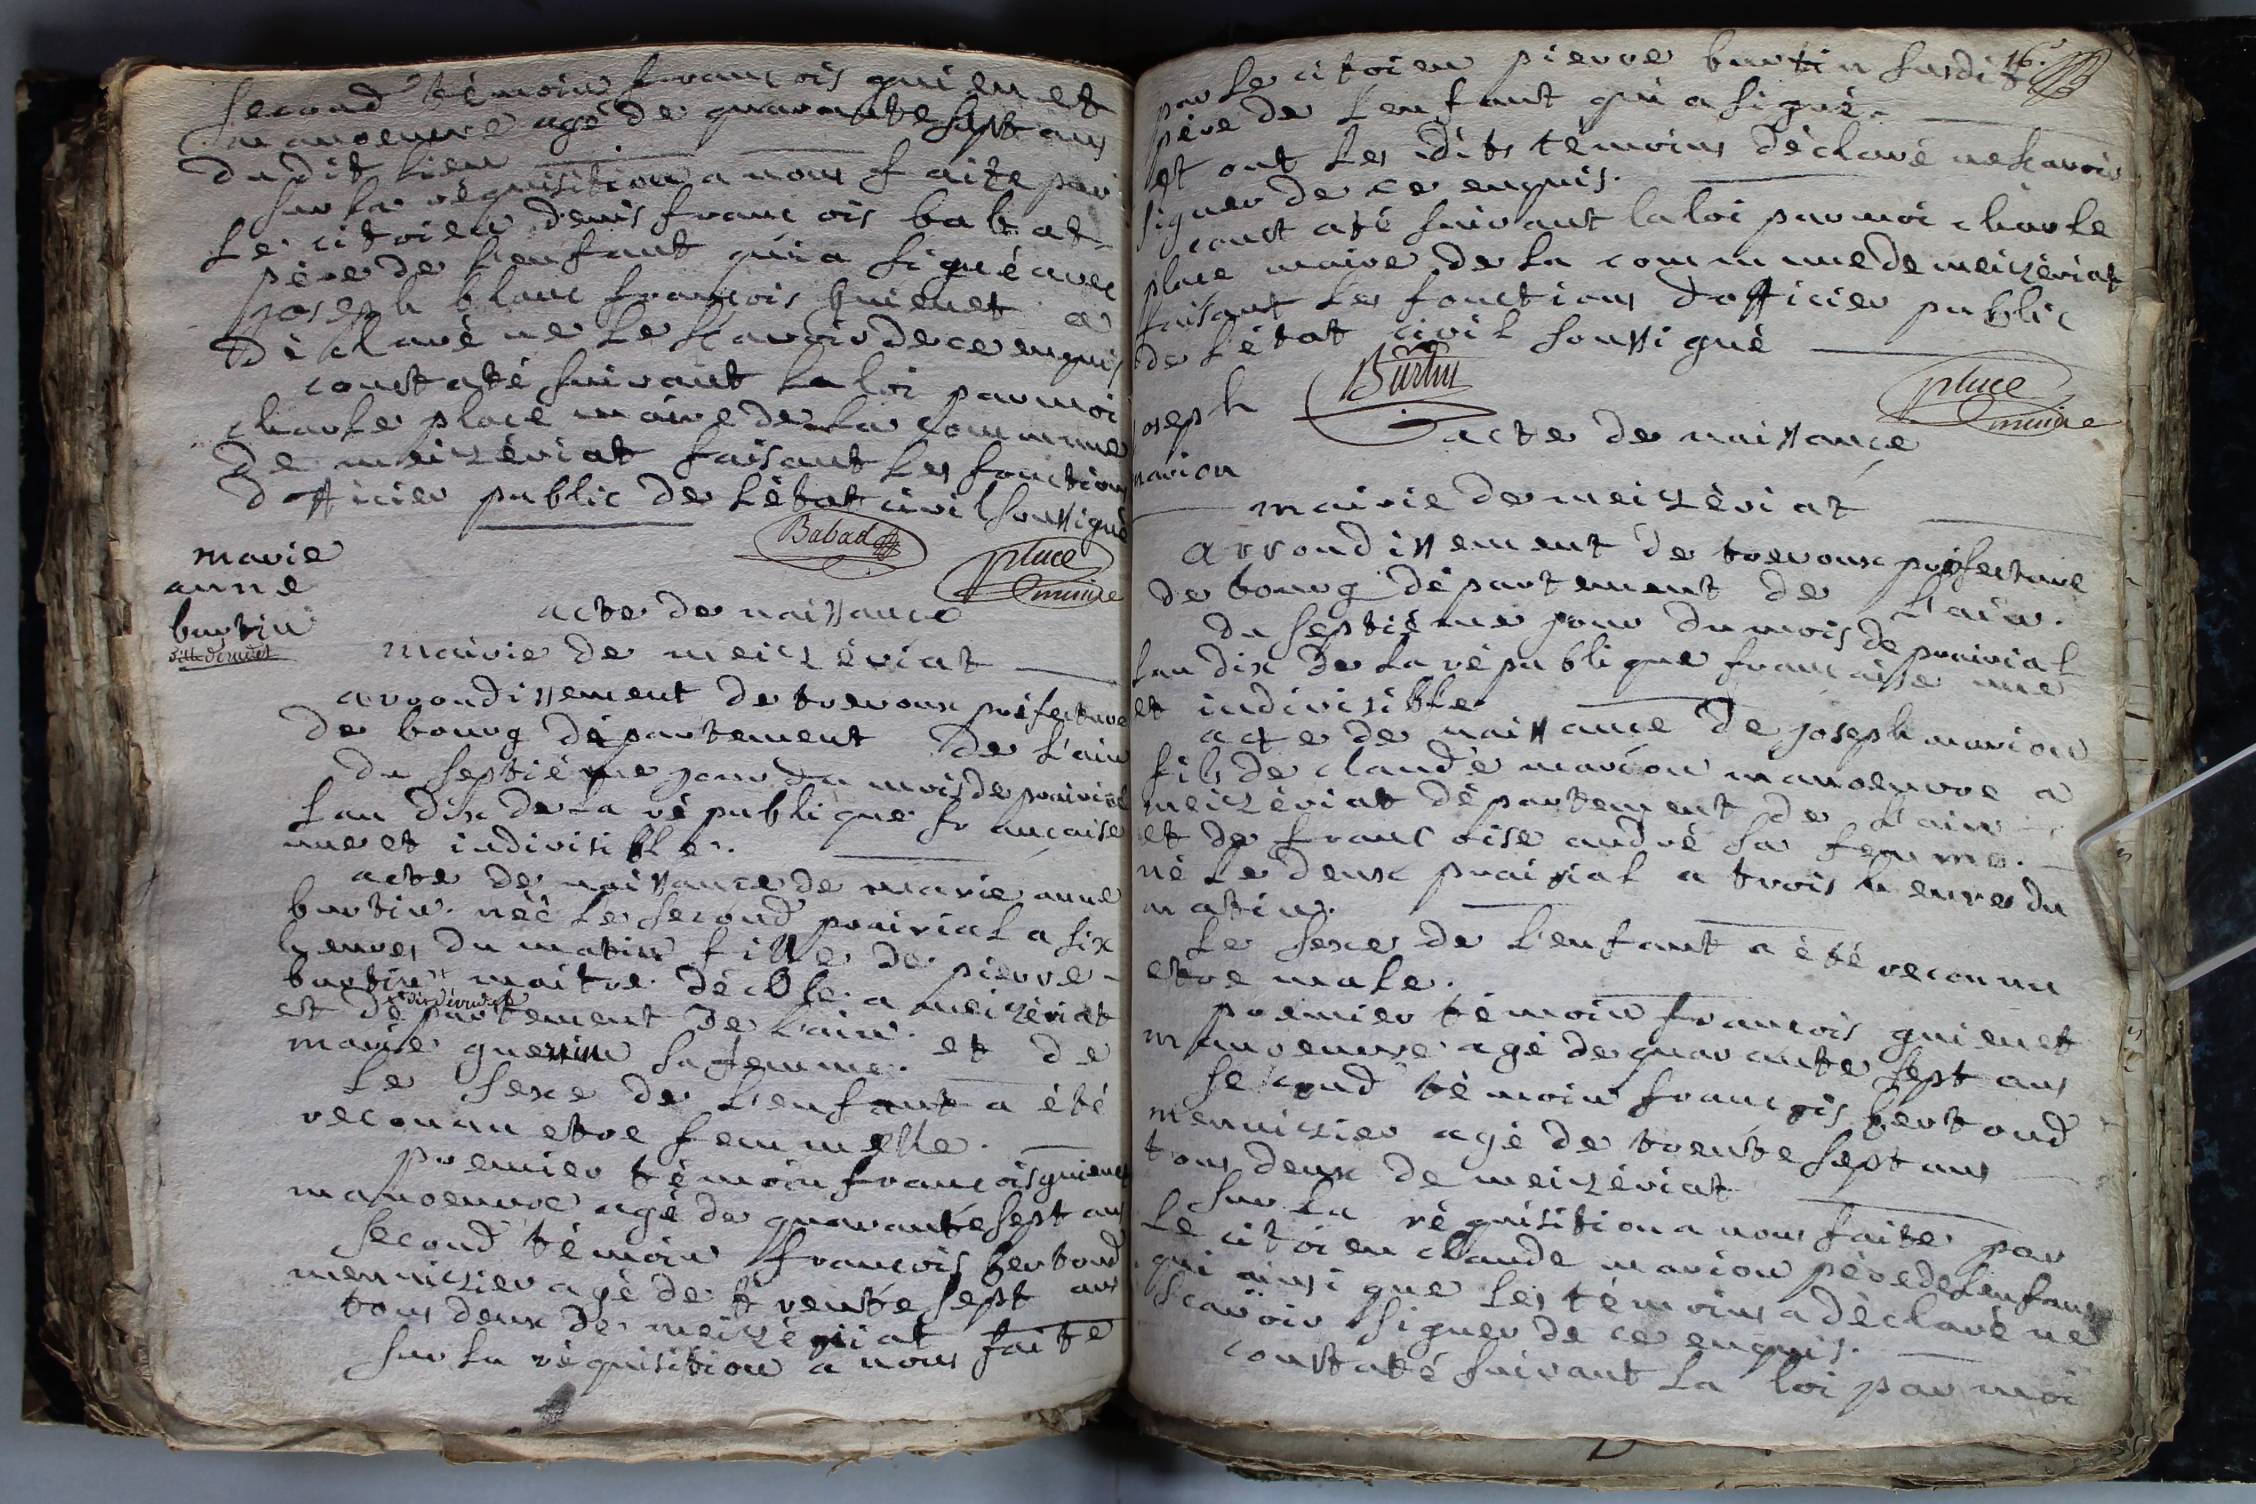 second témoin francois guienet
manoeuvre agé de quarante sept ans
dudit lieu
sur la réquisition a nous faite par
le citoien denis francois babat
père de l'enfant qui a signé avec
joseph blanc francois guienet a
déclaré ne le scavoir de ce enquis
constaté suivant la loi par moi
charle place maire de la commune
de meizériat faisant les fonctions
d'officier public de l'état civil soussigné
Babad
place
maire
marie
anne
burtin
acte de naissance
mairie de meizériat
arrondissement de trevoux préfecture
de bourg département de l'ain
du septiéme jour du mois de prairial
l'an dix de la république francaise
une et indivisible.
acte de naissance de marie anne
burtin née le second prairial a six
heures du matin fille de pierre
burtin maitre d'école a meizériat
et département de l'ain. et de
marie guerrin sa femme.
le sexe de l'enfant a été
reconnu etre femmelle.
premier témoin francois guienet
manoeuvre agé de quarante sept ans
second témoin francois bertoud
menuizier agé de trente sept ans
tous deux de meizériat
sur la réquisition a nous faite
16.
par le citoien pierre burtin susdit
père de l'enfant qui a signé.
et ont les dits témoins déclaré ne scavoir
signer de ce enquis.
constaté suivant la loi par moi charle
place maire de la commune de meizériat
faisant les fonctions d'officier public
de l'état civil soussigné
Burtin
place
maire
joseph
marion
acte de naissance
mairie de meizériat
arrondissement de trevoux préfecture
de bourg département de l'ain.
du septiéme jour du mois de prairial
l'an dix de la république francaise une
et indivisible
acte de naissance de joseph marion
fils de claude marion manoeuvre a
meizériat département de l'ain
et de francoise andré sa femme.
né le deux prairial a trois heures du
matin.
le sexe de l'enfant a été reconnu
etre male.
premier témoin francois guienet
manoeuvre agé de quarante sept ans
second témoin francois bertoud
menuizier agé de trente sept ans
tous deux de meizériat
sur la réquisition a nous faite par
le citoien claude marion père de l'enfant
qui ainsi que les témoins a déclaré ne
scavoir signer de ce enquis.
constaté suivant la loi par moi